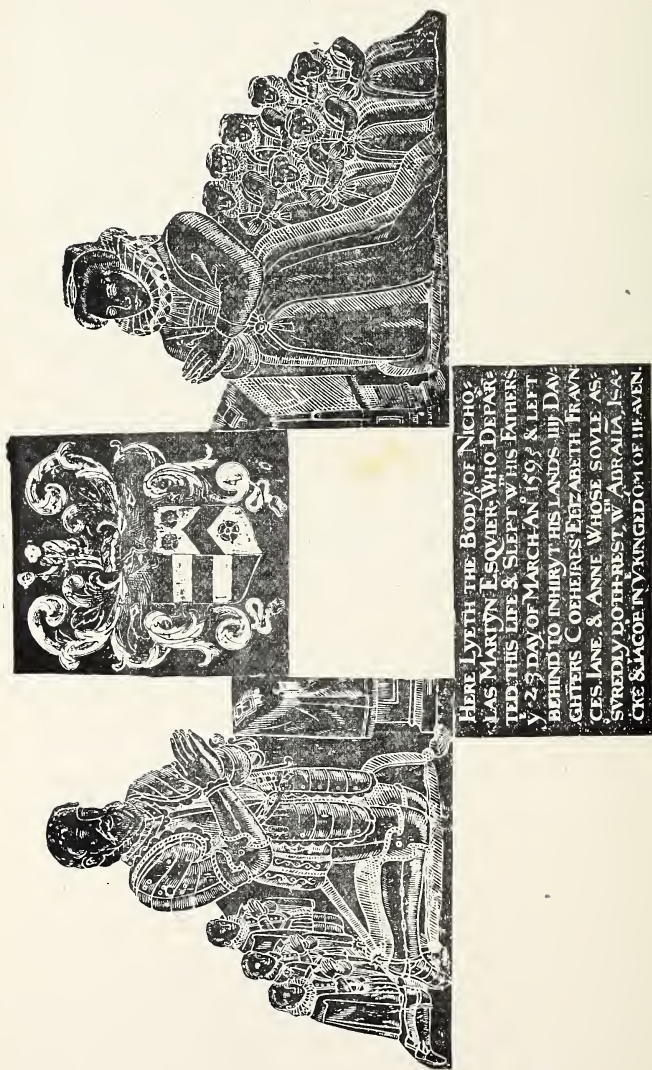 HERE LYETH THE BODY OF NICHO=
LAS MARTYN ESQVIER WHO DEPAR=
TED THIS LIFE & SLEPT Wᵀᴴ HIS FATHERS
Yᴱ 23 DAY OF MARCH AN° 1595 & LEFT
BEHIND TO INHIRYT HIS LANDS IIII DAV=
GHTERS COEHEIRES ELIZABETH FRAVN
CES, IANE, & ANNE WHOSE SOVLE AS=
SVREDLY DOTH REST Wᵀᴴ ABRAHĀ, ISA=
CKE & IACOB, IN Yᴱ KINGEDOM OF HEAVEN.